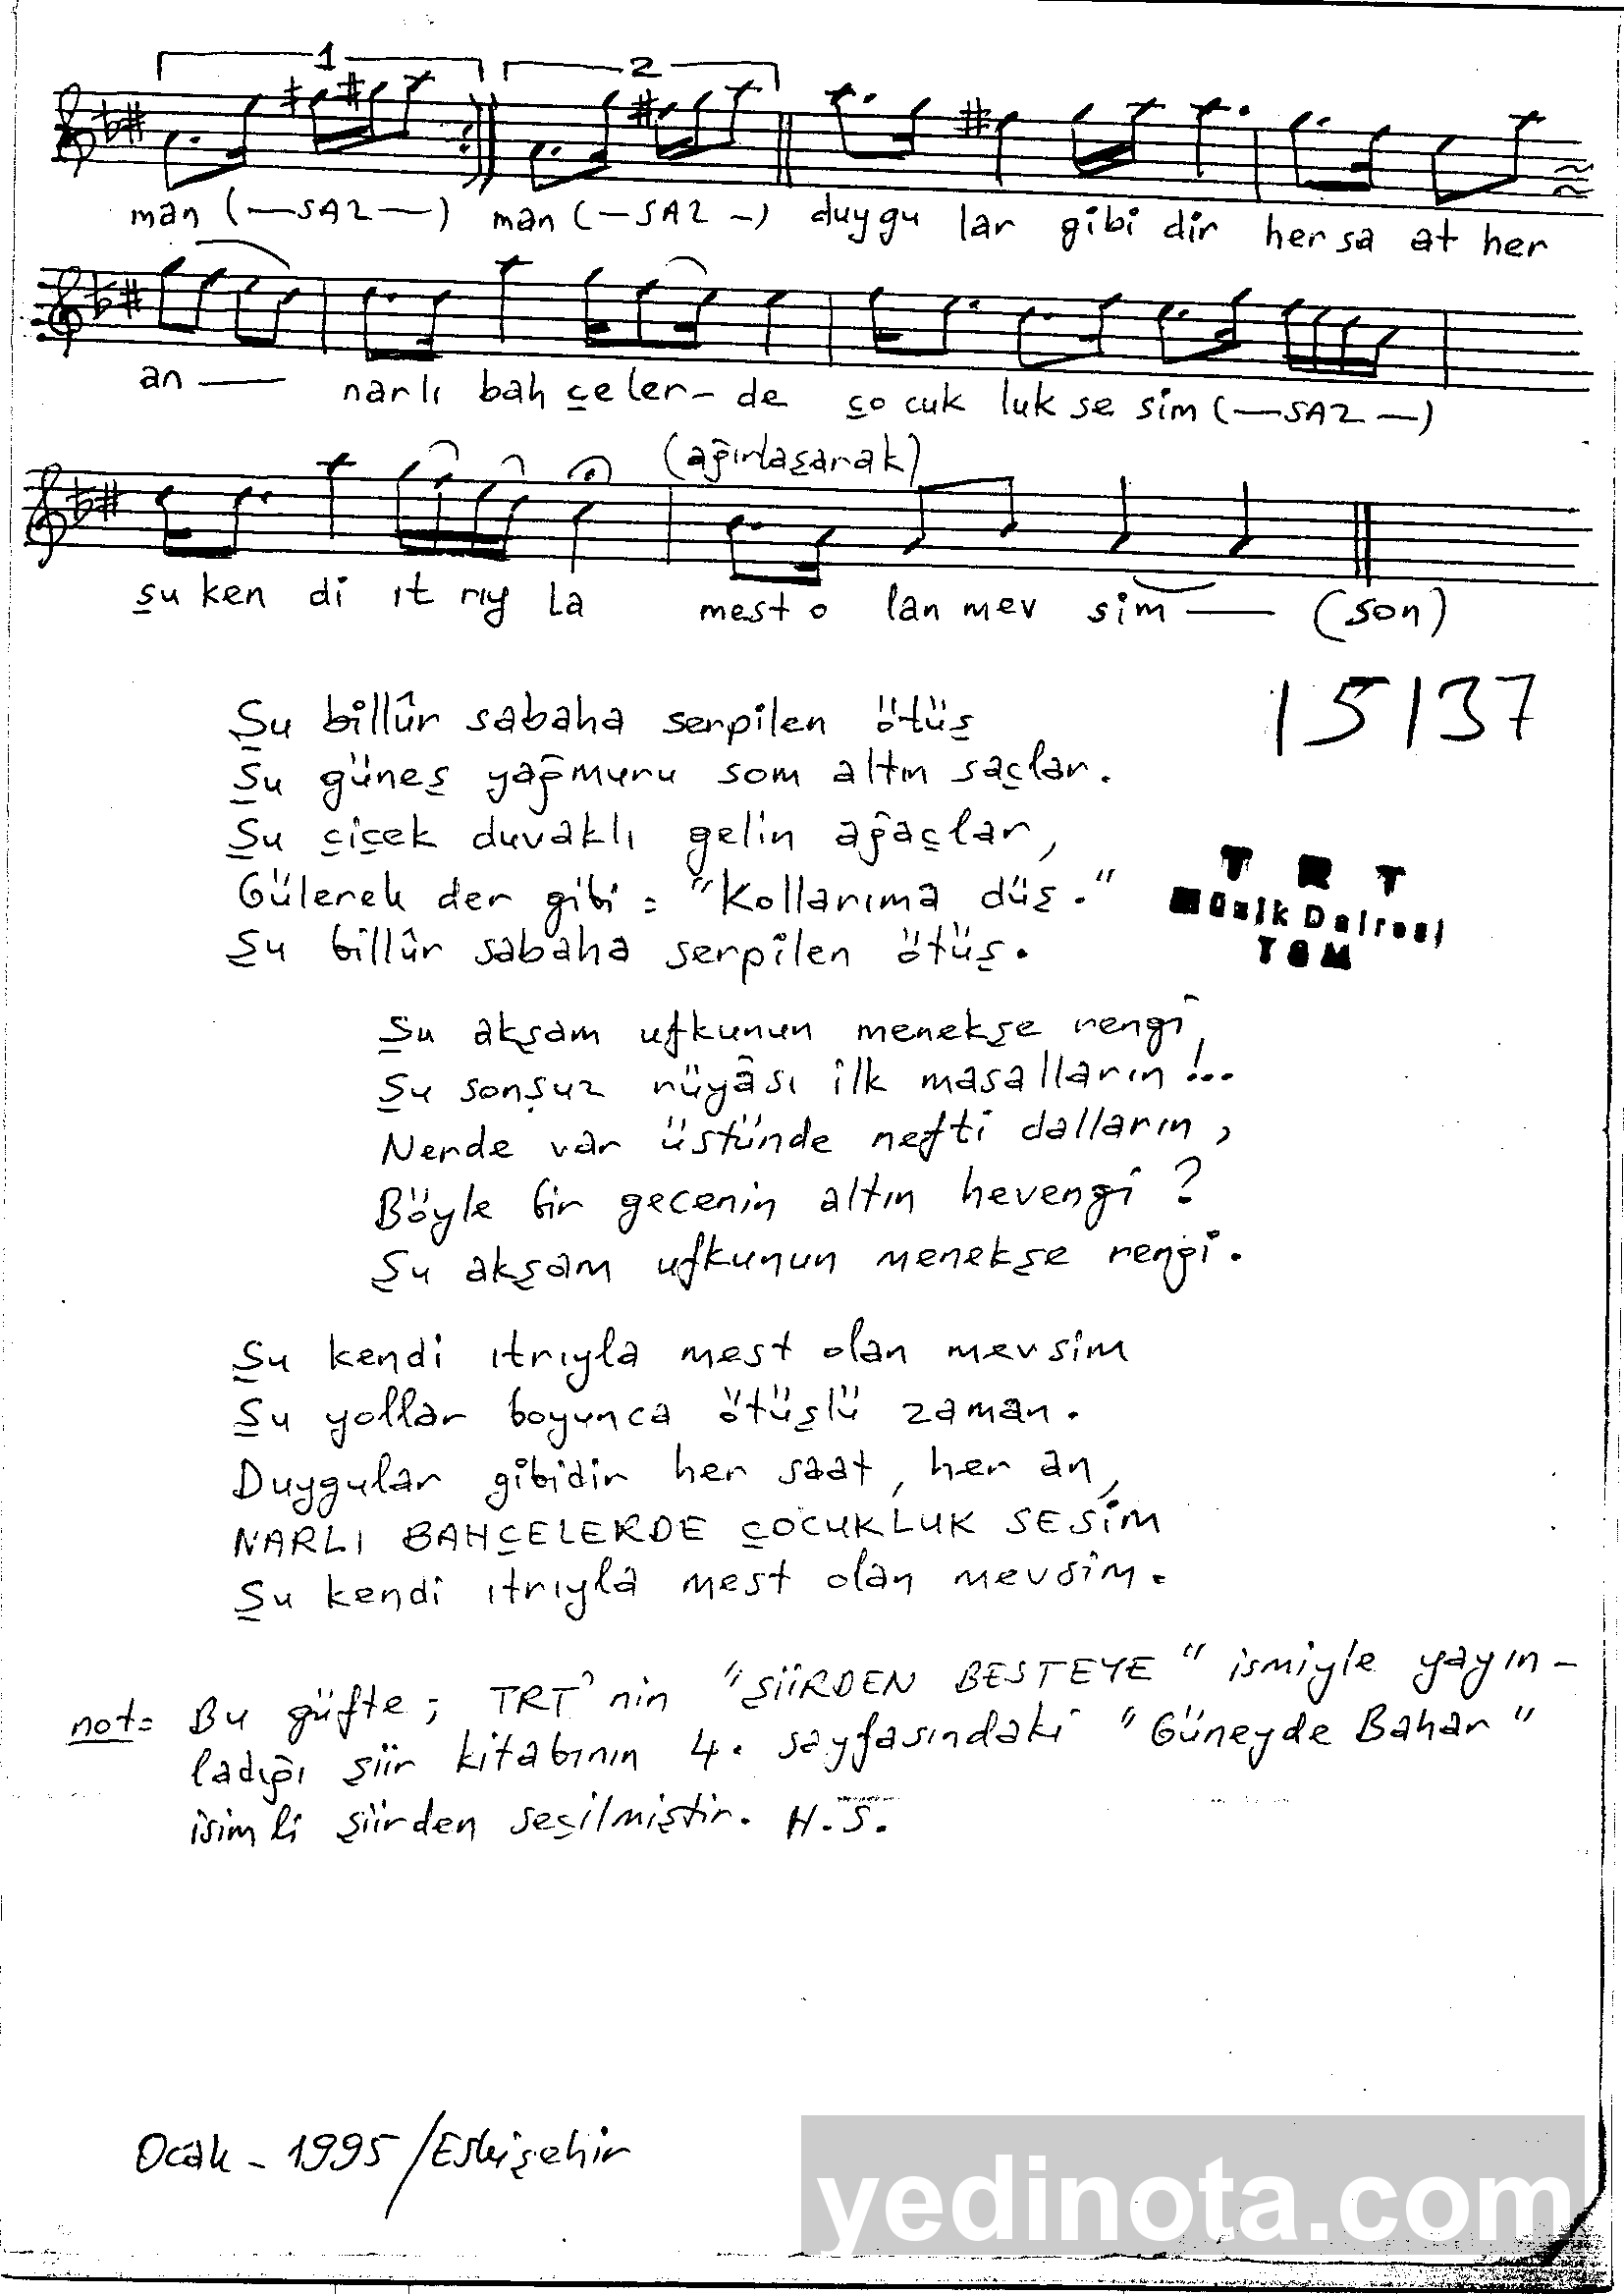 1 2
man (—SAZ—) man (—SAZ—) duygu lar gibi dir her sa at her
an—— narlı bah çe ler- de ço cuk luk se sim (—SAZ—)
(ağırlaşarak)
şu ken di ıt rıy la mest o lan mev sim —— (son)
15137
Şu billûr sabaha serpilen ötüş
Şu güneş yağmuru som altın saçlar.
Şu çiçek duvaklı gelin ağaçlar,
Gülerek der gibi: "Kollarıma düş."
Şu billûr sabaha serpilen ötüş.
T R T
Müzik Dairesi
TSM
Şu akşam ufkunun menekşe rengi,
Şu sonsuz rüyâsı ilk masalların!..
Nerde var üstünde nefti dalların,
Böyle bir gecenin altın hevengi?
Şu akşam ufkunun menekşe rengi.
Şu kendi ıtrıyla mest olan mevsim
Şu yollar boyunca ötüşlü zaman.
Duygular gibidir her saat, her an,
NARLI BAHÇELERDE ÇOCUKLUK SESİM
Şu kendi ıtrıyla mest olan mevsim.
not= Bu güfte; TRT'nin "ŞİİRDEN BESTEYE" ismiyle yayın-
ladığı şiir kitabının 4. sayfasındaki "Güneyde Bahar"
isimli şiirden seçilmiştir. H.S.
Ocak - 1995 /Eskişehir
yedinota.com